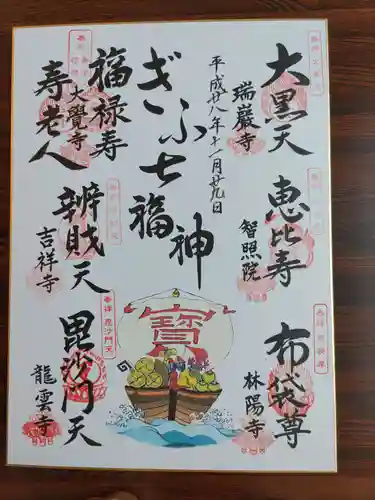 大黒天
瑞巖寺
恵比寿
智照院
布袋尊
林陽寺
平成廿八年十一月廿九日
ぎふ七福神
寳
福禄寿
大覺寺
寿老人
辨財天
吉祥寺
毘沙門天
龍雲寺